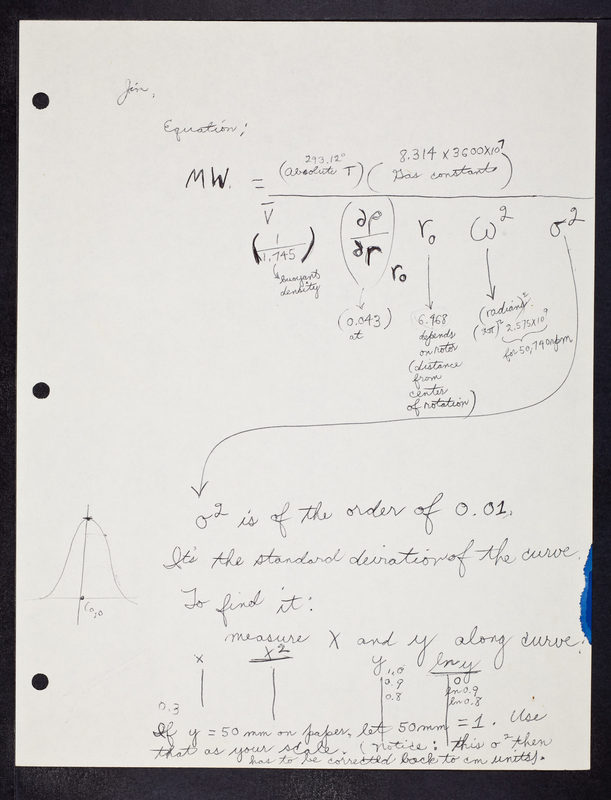 Jim,
Equation;
293.12° 8.314 x 3600x10⁷
MW. = (absolute T) (Gas constant)
V̄ (∂ρ/∂r) r₀ r₀ ω² σ²
(1/1.745)
buoyant
density
(0.043)
at
6.468
depends
on rotor
(distance
from
center
of rotation)
(radians)²
2.575x10⁹
for 50,740 rpm
σ² is of the order of 0.01.
It's the standard deiration of the curve.
To find it:
measure x and y along curve.
(0,0
x x² y ln y
1.0 0
0.9 ln 0.9
0.8 ln 0.8
0.3
If y = 50 mm on paper, let 50mm = 1. Use
that as your scale. (Notice: this σ² then
has to be corrected back to cm units).